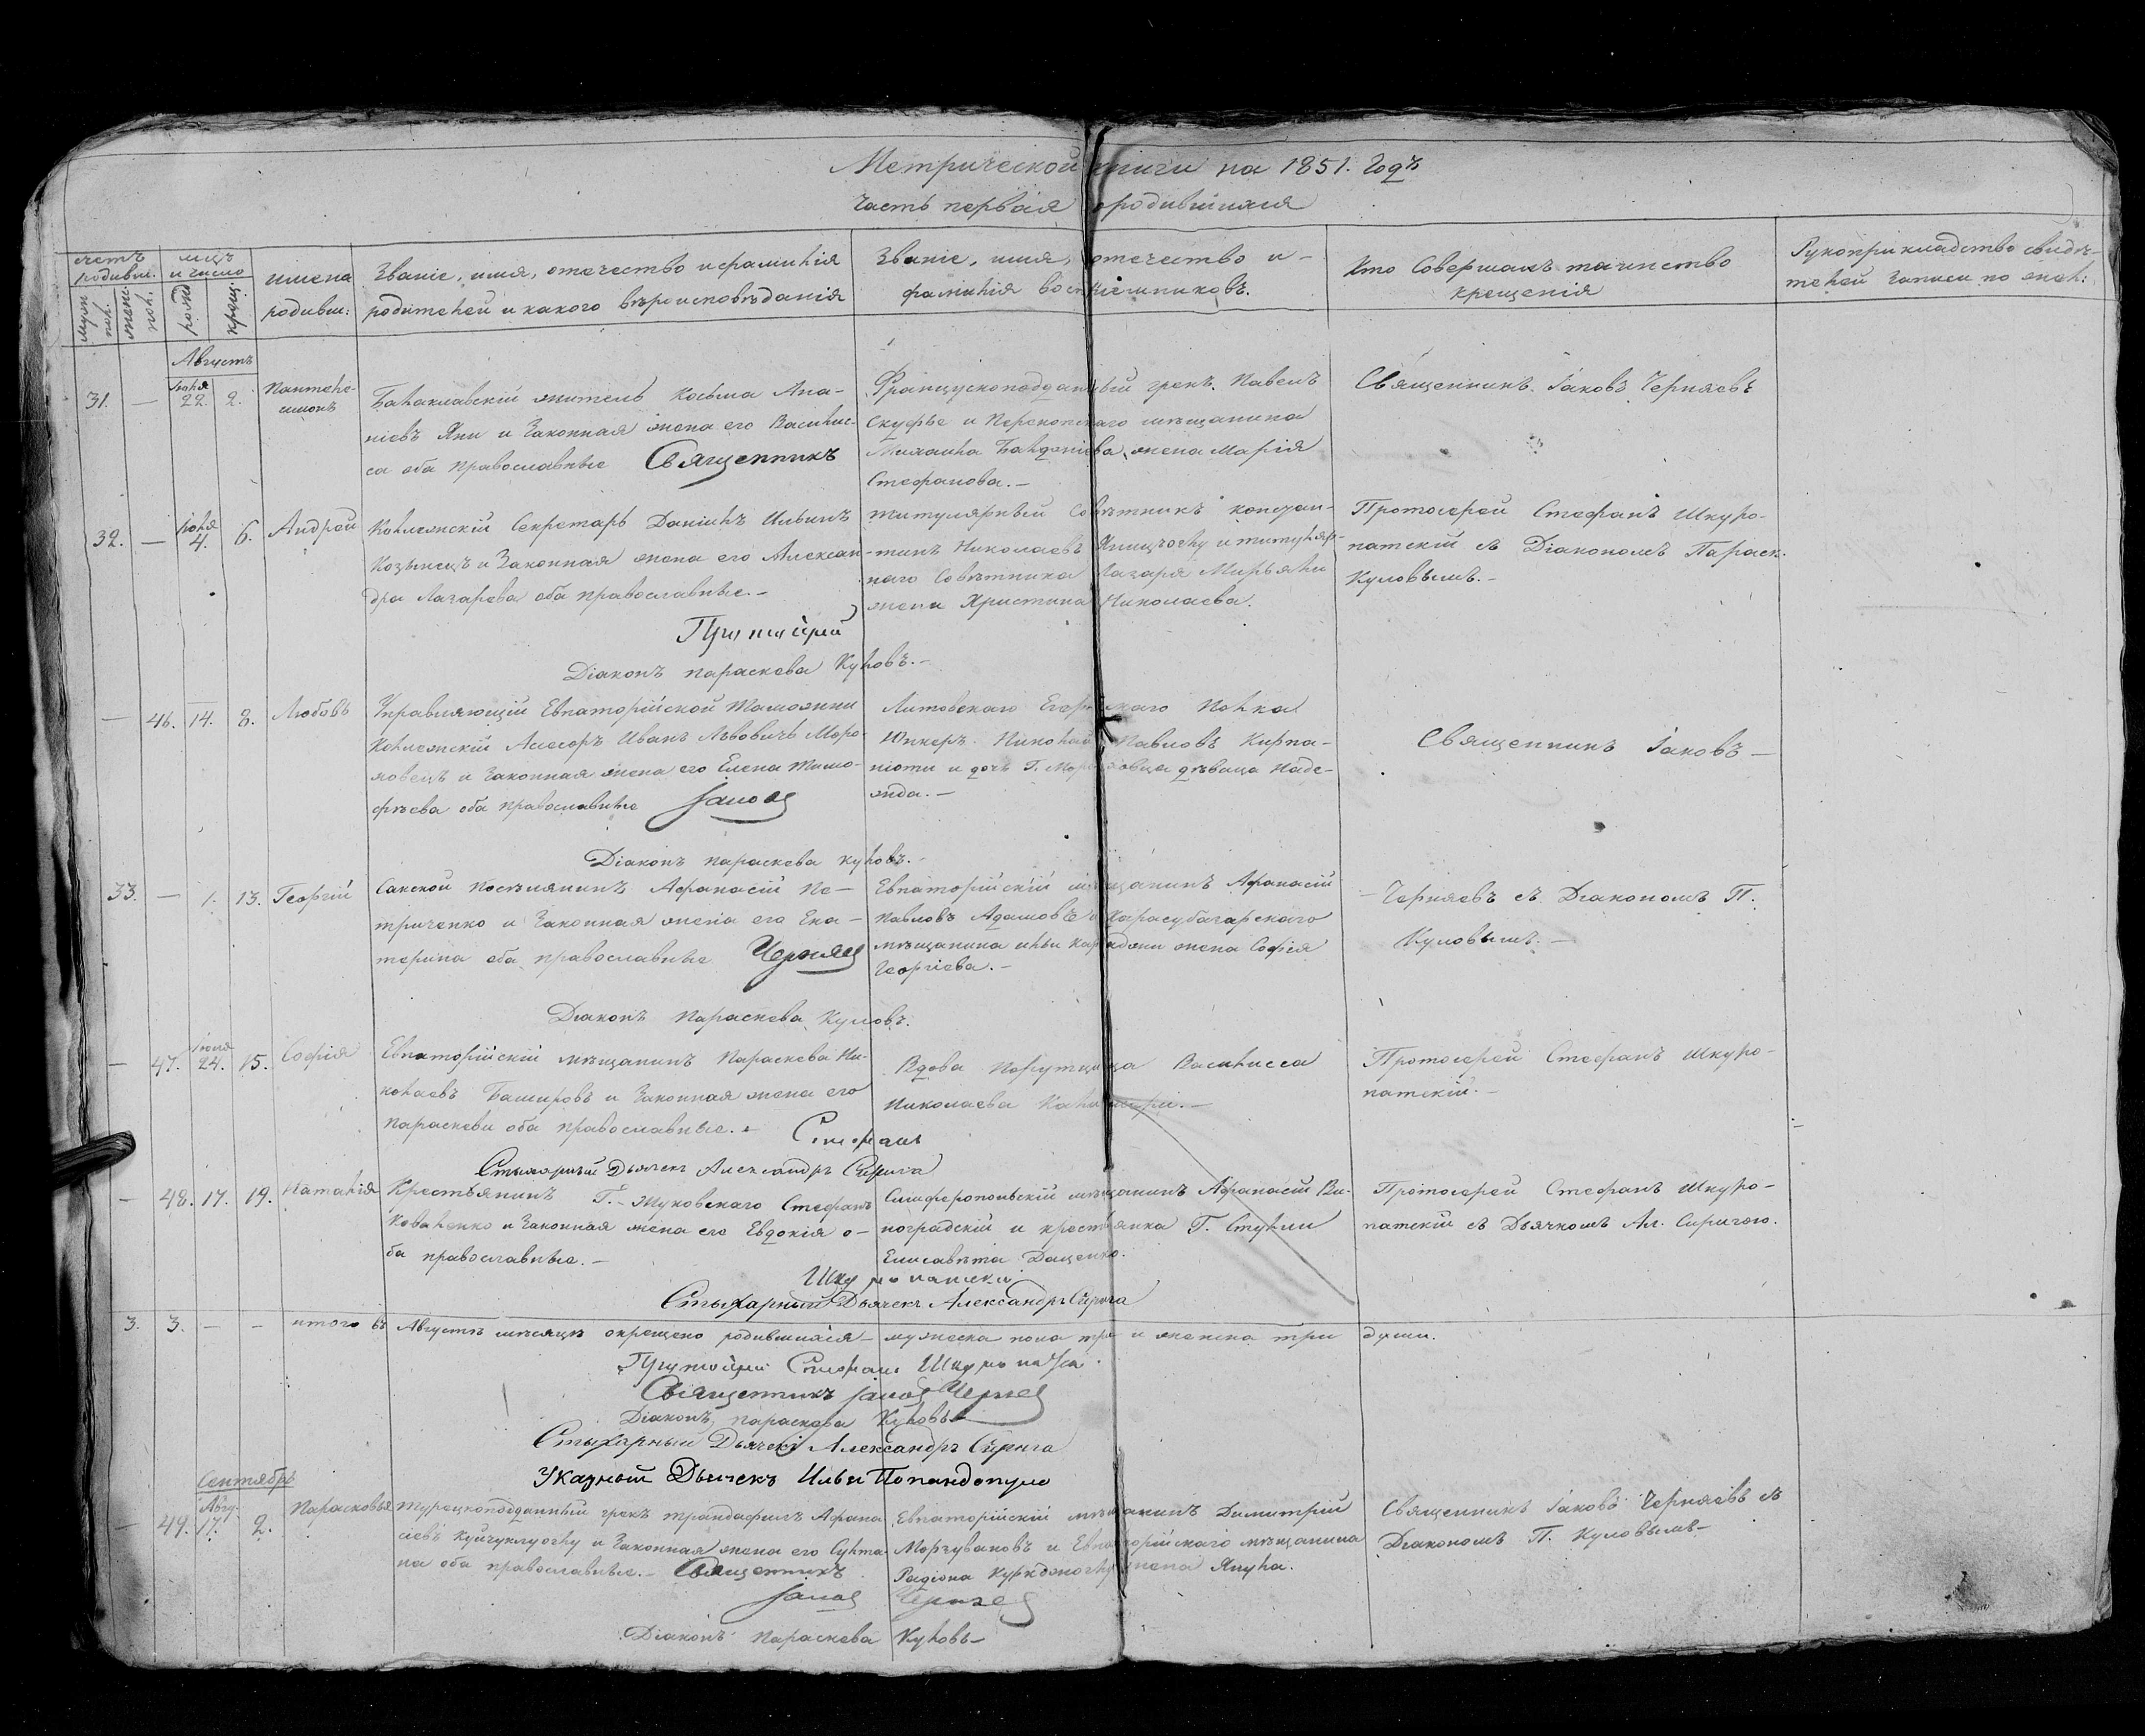 Метрической книги на 1851. Годъ
Часть первая о родившихся
счетъ родивш.
муж. пол.
женс. пол.
мцъ и число
рожд.
крещ.
имена родивш:
Званіе, имя, отечество и фамилія
родителей и какого вѣроисповѣданія
Званіе, имя, отечество и
фамилія воспріемниковъ.
Кто Совершалъ таинство
крещенія
Рукоприкладство свидѣ-
телей записи по жел:
Августъ
31. — Іюля 22. 2. Пантеле-
имонъ
Балаклавскій житель Косьма Ана-
ніевъ Яни и Законная жена его Васились-
са оба православные Священникъ
Французскоподданный грекъ Павелъ
Скуфье и Перекопскаго мѣщанина
Михаила жена Марія
Стефанова. —
Священникъ Іаковъ Черняевъ
32. — Іюля 4. 6. Андрей
Коллежскій Секретарь Даніилъ Ильинъ
Козынецъ и Законная жена его Алексан-
дра Лазарева оба православные. —
Титулярный Совѣтникъ констан-
тинъ Николаевъ и титуляр-
наго Совѣтника Лазаря
жена Христина Николаева.
Протоіерей Стефанъ Шкуро-
патскій съ Діакономъ Параск.
Куловымъ. —
Протоіерей
Діаконъ Параскева Куловъ. —
— 46. 14. 8. Любовь
Управляющій Евпаторійской Таможни
Коллежскій Асесоръ Иванъ Львовичъ Моро-
зовецъ и законная жена его Елена Тимо-
фѣева оба православные Іаковъ
Литовскаго Егерскаго Полка
Юнкеръ Николай Павловъ Кирпа-
ніоти и дочь Г. Морозовца дѣвица Наде-
жда. —
Священникъ Іаковъ —
Діаконъ Параскева Куловъ. —
33. — 1. 13. Георгій
Сакской Поселянинъ Афанасій Пе-
триченко и Законная жена его Ека-
терина оба православные Черняев
Евпаторійскій мѣщанинъ Афанасій
Павловъ Адамовъ и Карасубазарскаго
мѣщанина Ильи жена Софія
Георгіева. —
— Черняевъ съ Діакономъ П.
Куловымъ. —
Діаконъ Параскева Куловъ.
— 47. Іюля 24. 15. Софія
Евпаторійскій мѣщанинъ Параскева Ни-
колаевъ Башировъ и Законная жена его
Параскеви оба православные. —
Вдова Порутчица Василисса
Николаева
Протоіерей Стефанъ Шкуро-
патскій. —
Стефанъ
Стихарный Дьячекъ Александръ Сирига
— 48. 17. 19. Наталія
Крестьянинъ Г. Жуковскаго Стефанъ
Коваленко и Законная жена его Евдокія о-
ба православные. —
Симферопольскій мѣщанинъ Афанасій Ви-
ноградскій и крестьянка Г.
Елисавѣта Даценко.
Протоіерей Стефанъ Шкуро-
патскій съ Дьячкомъ Ал. Сиригою.
Шкуропатски
Стихарный Дьячекъ Александръ Сирига
3. 3. — — итого въ Августѣ мѣсяцѣ окрещено родившихся — мужеска пола три и женска три души.
Протоіерей Стефанъ
Священникъ Іаковъ Черняев
Діаконъ Параскева Куловъ
Стихарный Дьячекъ Александръ Сирига
Указный Дьячекъ Илья Попандопуло
Сентябрь
— 49. Авгу. 17. 2. Парасковья
Турецкоподданный грекъ Трандафилъ Афана
сіевъ и Законная жена его Султа-
на оба православные. — Священникъ
Евпаторійскій мѣщанинъ Димитрій
и Евпаторійскаго мѣщанина
Радіона жена
Священникъ Іаковъ Черняевъ съ
Діакономъ П. Куловымъ —
Іаков Черняев
Діаконъ Параскева Куловъ —